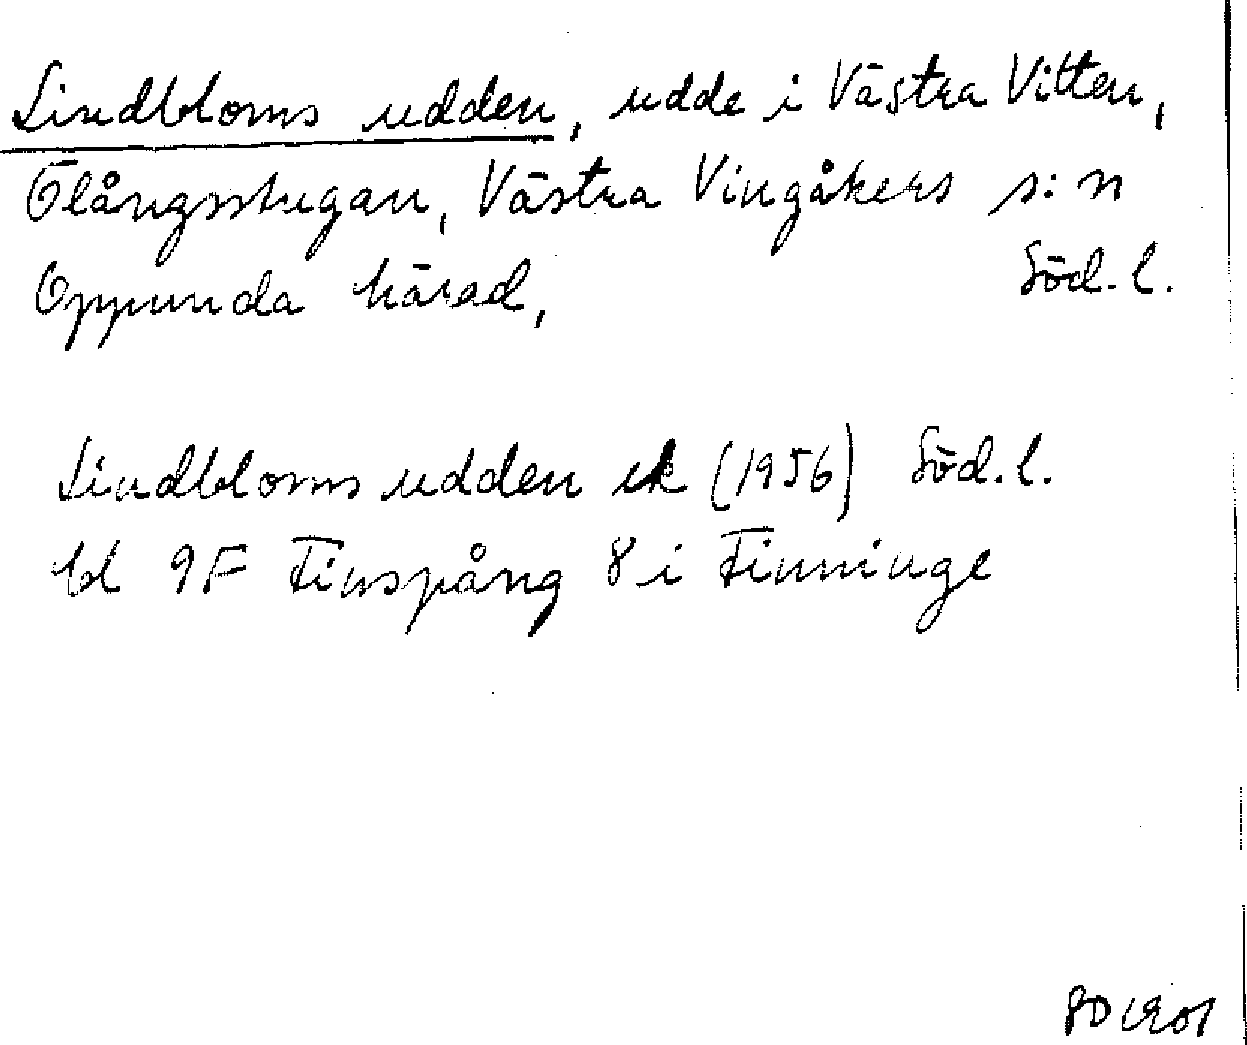 Lindbloms udden, udde i Västra Vitten,
Ölångsstugan, Västra Vingåkers s:n
Oppunda härad, Söd. l.
Lindbloms udden ek (1956) Söd. l.
bl 9F Finspång 8i Finninge